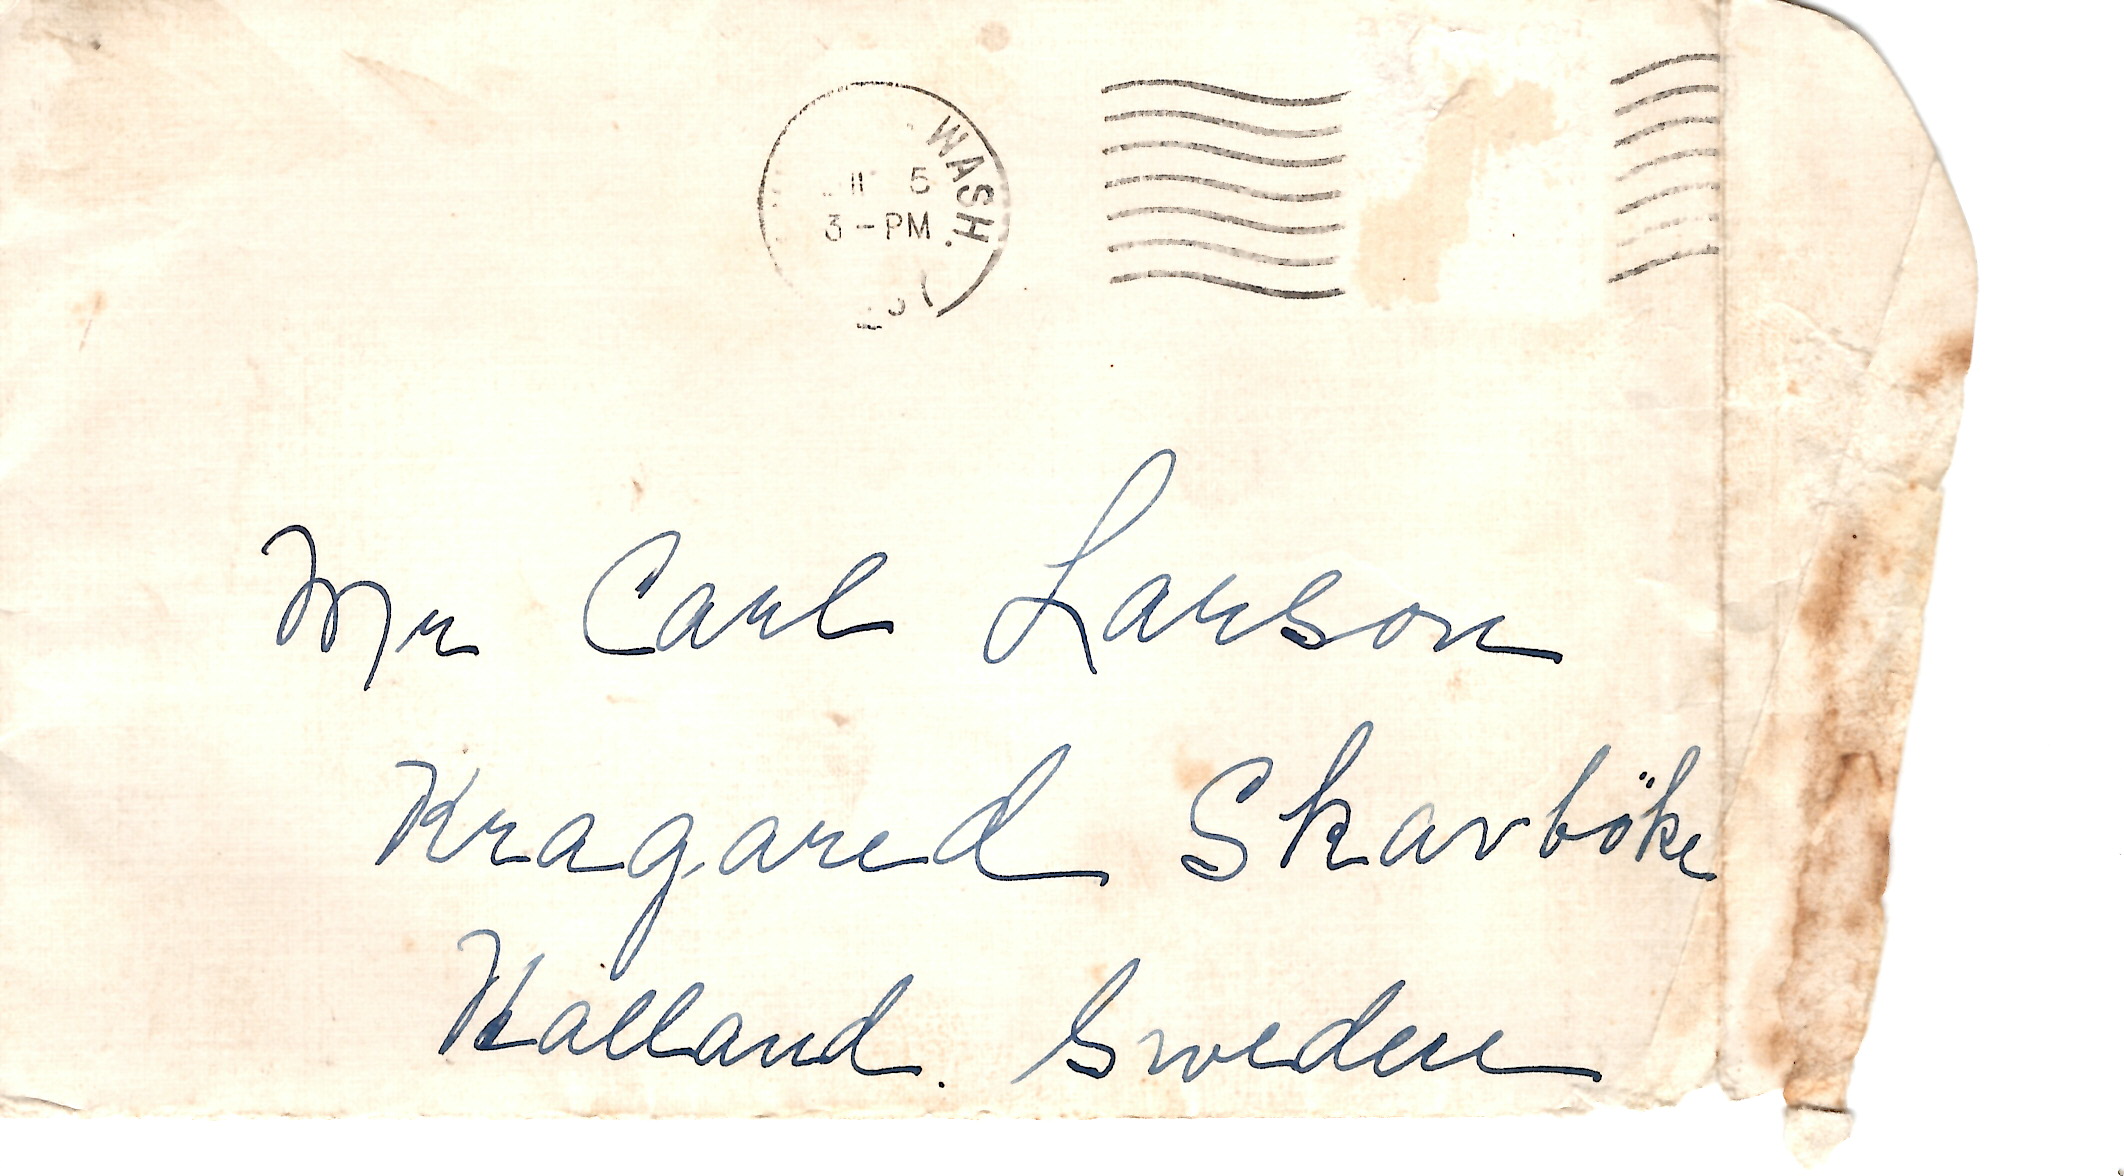 WASH.
5
3-PM
Mr Carl Larson
Kragared Skavböke
Halland. Sweden